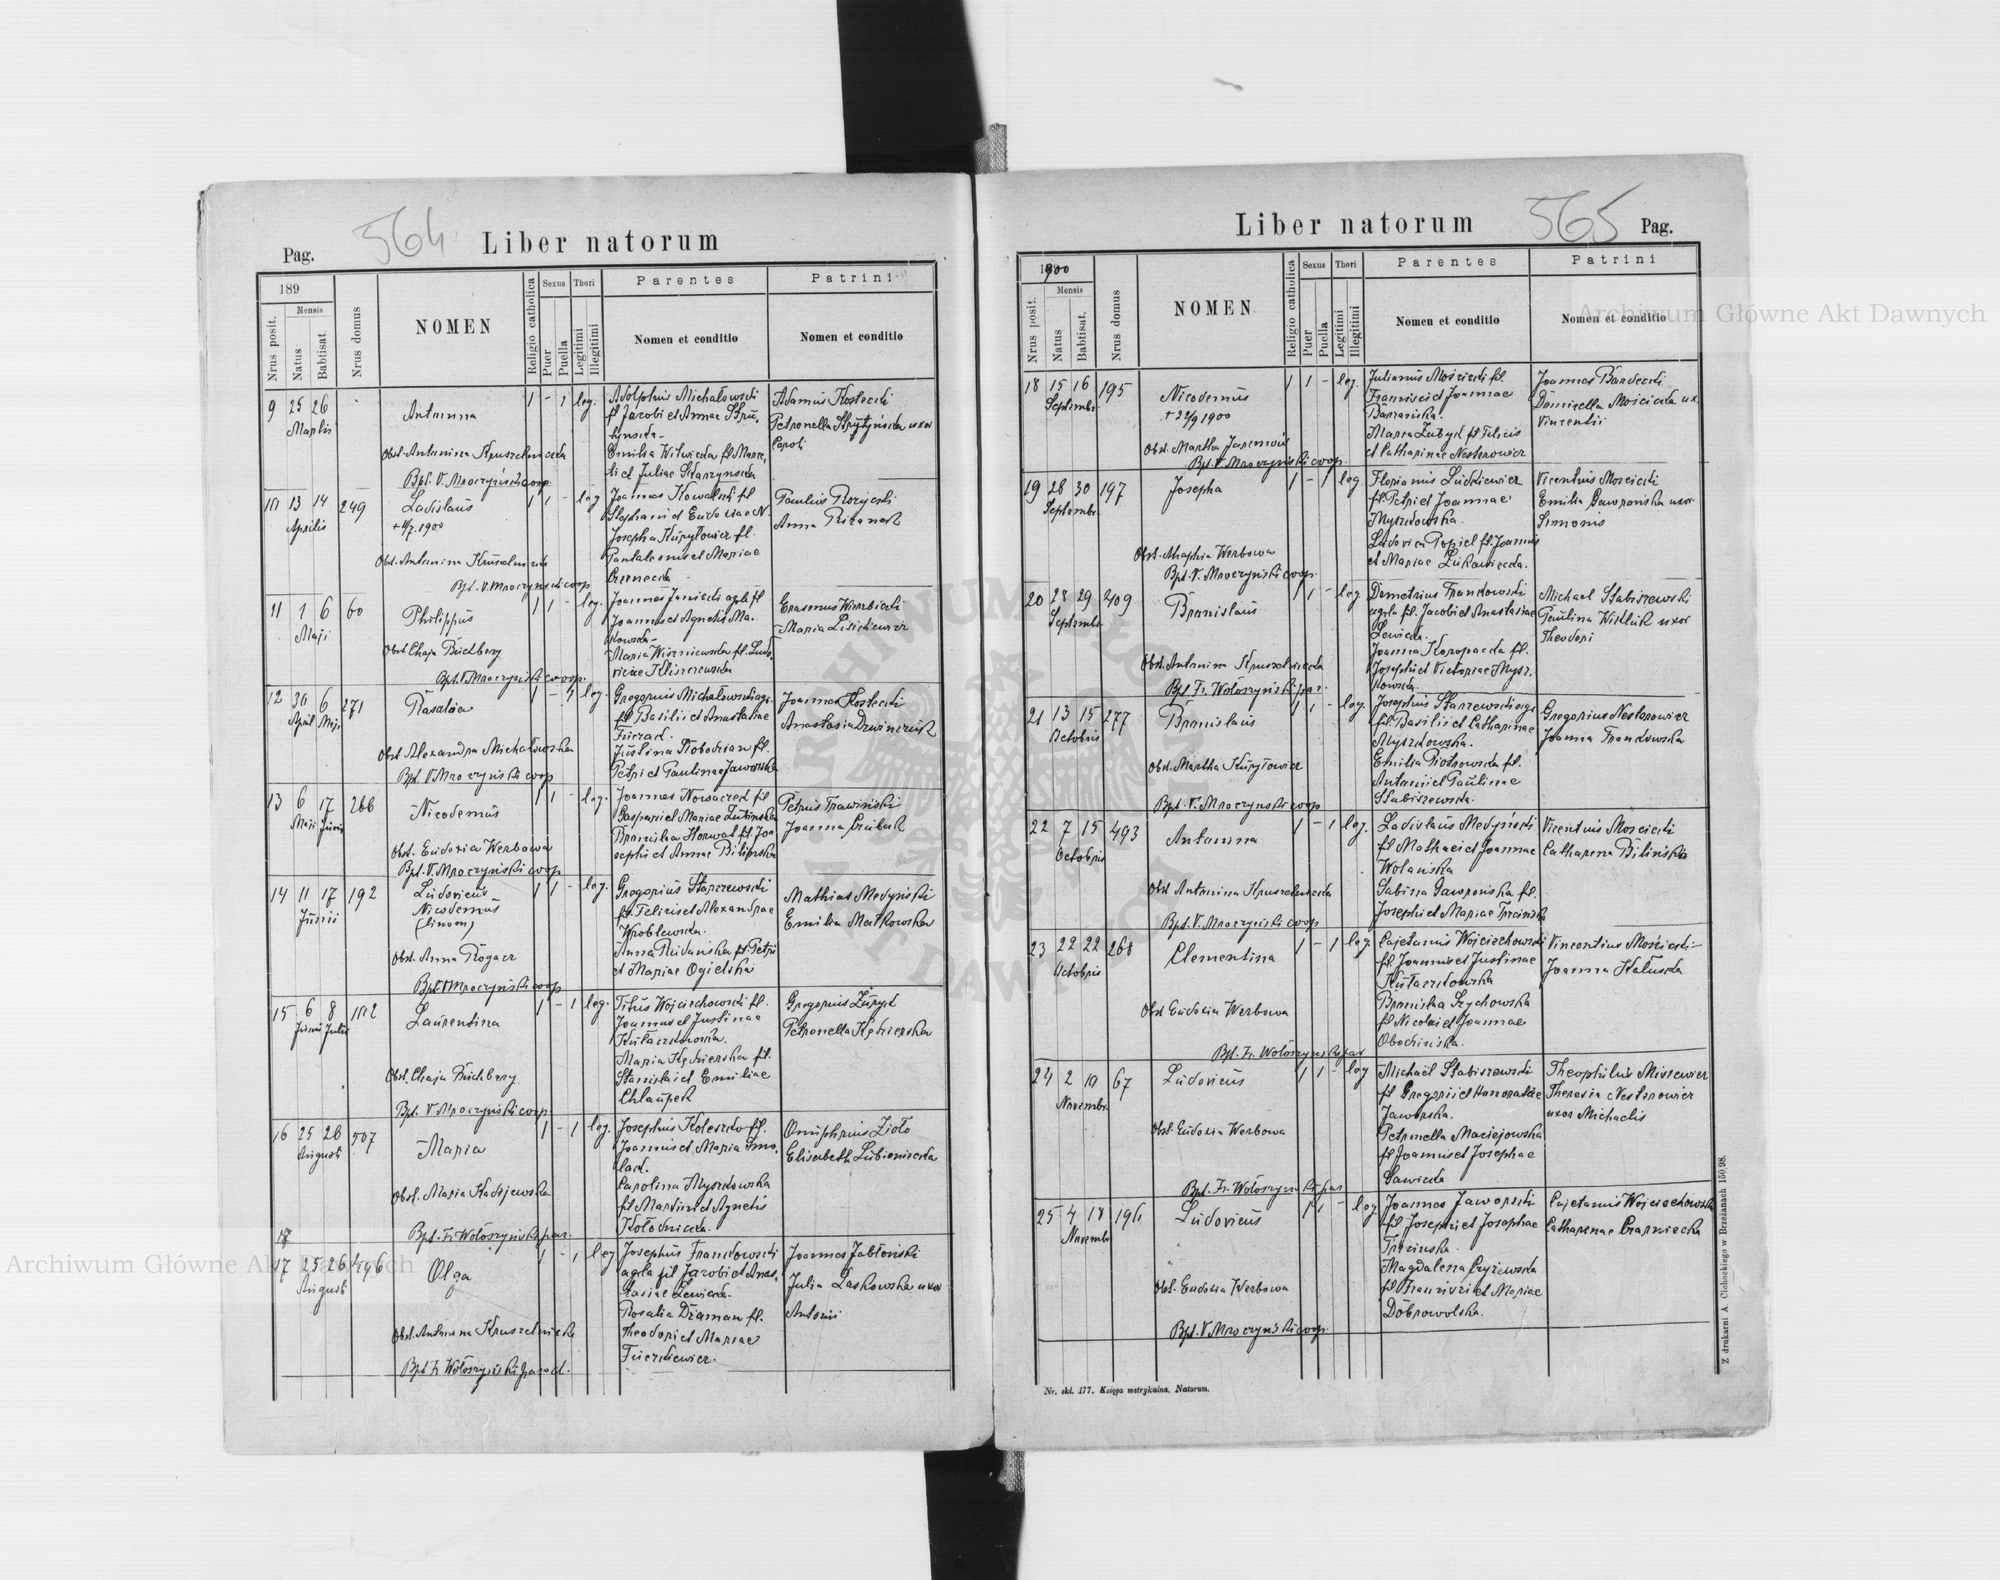 564
Pag.
Liber natorum
189
Nrus posit.
Mensis
Natus
Babtisat.
Nrus domus
NOMEN
Religio catholica
Sexus
Puer
Puella
Thori
Legitimi
Illegitimi
Parentes
Nomen et conditio
Patrini
Nomen et conditio
9 25 26
Martii
Antonina
1 - 1 leg.
Adolphus Michałowski
fl. Jacobi et Annae
Emilia Witwicka fl.
et Juliae
Adamus Kostecki
Petronella uxor
Caroli
Obst. Antonina Kruszelnicka
Bpt. V. Mroczyński coop
10 13 14 249
Aprilis
Ladislaus
1 1 - leg
Joannes Kowalski fl.
Stephani et Eudoxiae N.
Josepha Kuryłowicz fl.
Pantaleonis et Mariae
Czernecka
Paulus Rozycki
Anna
Obst. Antonina
Bpt. V. Mroczyński coop
11 1 6 60
Maji
Philippus
1 1 - leg.
Joannes Janicki agla fl.
Joannis et Agnetis Ma-
kowska
Maria Wiszniewska fl. Ludo-
vicae
Erasmus Wierzbicki
Maria Lisikiewicz
Obst. Chaja Buchberg
Bpt. V. Mroczyński coop.
12 30 6 271
April Maji
Rosalia
1 - 1 leg.
Gregorius Michałowski agr.
fl. Basilii et Anastasiae
Justina fl.
Petri et Paulinae Jaworska
Joannes Kostecki
Anastasia
Obst. Alexandra Michałowska
Bpt. V. Mroczyński coop
13 6 17 266
Maji Junii
Nicodemus
1 1 - leg.
Joannes fl.
Gaspari et Mariae
fl. Jo-
sephi et Annae Bilińska
Petrus Trawiński
Joanna
Obst. Eudoxia Werbowa
Bpt. V. Mroczyński coop
14 11 17 192
Junii
Ludovicus
Nicodemus
(binom)
1 1 - leg.
Gregorius Starzewski
fl. Felicis et Alexandrae
Wroblewska.
Anna fl. Petri
et Mariae
Mathias Medyński
Emilia Matkowska
Obst. Anna Rogacz
Bpt. V. Mroczyński coop
15 6 8 102
Junii Julii
Laurentina
1 - 1 leg.
Titus Wojciechowski fl.
Joannis et Justinae
Maria Kędzierska fl.
Stanislai et Emiliae
Chłaupek
Gregorius
Petronella Kędzierska
Obst. Chaja Buchberg
Bpt. V. Mroczyński coop
16 25 26 507
Augusti
Maria
1 - 1 leg.
Josephus fl.
Joannis et Maria Smo-
Carolina Myszkowska
fl. Martini et Agnetis
Kołodnicka.
Onuphrius Zioło
Elisabeth Lubieniecka
Obst. Maria
Bpt. Fr. Wołoszyński par.
17
17 25 26 496
Augusti
Olga
1 - 1 leg
Josephus Frankowski
agla fil. Jacobi et Anas-
tasiae Lewicka
Rosalia Draman fl.
Theodori et Mariae
Joannes Jabłoński
Julia Laskowska uxor
Antonii
Obst. Antonina Kruszelnicka
Bpt. Fr. Wołoszyński paroch.
Liber natorum
565
Pag.
1900
Nrus posit.
Mensis
Natus
Babtisat.
Nrus domus
NOMEN
Religio catholica
Sexus
Puer
Puella
Thori
Legitimi
Illegitimi
Parentes
Nomen et conditio
Patrini
Nomen et conditio
18 15 16 195
Septembr.
Nicodemus
+ 22/9 1900
1 1 - leg.
Julianus Mościcki fl.
Francisci et Joannae
Barańska.
Maria fl. Felicis
et Catharinae Nesterowicz
Joannes Bardecki
Domicella Mościcka ux.
Vincentii
Obst. Martha
Bpt. V. Mroczyński coop.
19 28 30 197
Septembr.
Josepha
1 - 1 leg.
Florianus Ludkiewicz
fl. Petri et Joannae
Myszkowska.
Ludovica Popiel fl. Joannis
et Mariae Łukawiecka.
Vicentius Moscicki
Emilia Gaworońska uxor
Simonis
Obst. Werbowa
Bpt. V. Mroczyński coop.
20 28 29 409
Septembr.
Bronislaus
1 1 - leg.
Demetrius Frankowski
agla fl. Jacobi et Anastasiae
Lewicka.
Joanna Koropacka fl.
Josephi et Victoriae Mysz-
kowska.
Michael Stabiszewski
Paulina uxor
Theodori
Obst. Antonina Kruszelnicka
Bpt. Fr. Wołoszyński par.
21 13 15 277
Octobris
Bronislaus
1 1 - leg.
Josephus Starzewski agr.
fl. Basilii et Catharinae
Myszkowska.
Emilia Piotrowska fl.
Antonii et Paulinae
Stabiszewska.
Gregorius Nesterowicz
Joanna Frankowska
Obst. Martha Kuryłowicz
Bpt. V. Mroczyński coop
22 7 15 493
Octobris
Antonina
1 - 1 leg.
Ladislaus Medyński
fl. Mathaei et Joannae
Wolańska
Sabina Gaworońska fl.
Josephi et Mariae Trzcińska
Vicentius Moscicki
Catharina Bilińska
Obst. Antonina Kruszelnicka
Bpt. V. Mroczyński coop
23 22 22 268
Octobris
Clementina
1 - 1 leg.
Cajetanus Wojciechowski
fl. Joannis et Justinae
Bronisłea Szychowska
fl. Nicolai et Joannae
Obodzińska.
Vincentius Mościcki
Joanna Kałuska
Obst. Eudoxia Werbowa
Bpt. Fr. Wołoszyński par
24 2 10 67
Novembr.
Ludovicus
1 1 - leg
Michaël Stabiszewski
fl. Gregorii et Honoratae
Jaworska.
Petronella Maciejowska
fl. Joannis et Josephae
Sawicka
Theophilus Misiewicz
Theresia Nesterowicz
uxor Michaelis
Obst. Eudoxia Werbowa
Bpt. Fr. Wołoszyński par
25 4 18 196
Novembr.
Ludovicus
1 1 - leg.
Joannes Jaworski
fl. Josephi et Josephae
Trzcinska.
Magdalena Czyżewska
fl. Francisci et Mariae
Dobrowolska.
Cajetanus Wojciechowski
Catharinae Czarniecka
Obst. Eudoxia Werbowa
Bpt. V. Mroczyński coop.
Nr. skł. 177. Księga metrykalna. Natorum.
Z drukarni A. Cichockiego w Brzeżanach 150.98.
Archiwum Główne Akt Dawnych
Archiwum Główne Akt Dawnych